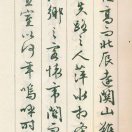 高而北辰遠關山難
失路之人萍水相
鄉之客懷帝閽而
宣室以何年嗚呼時